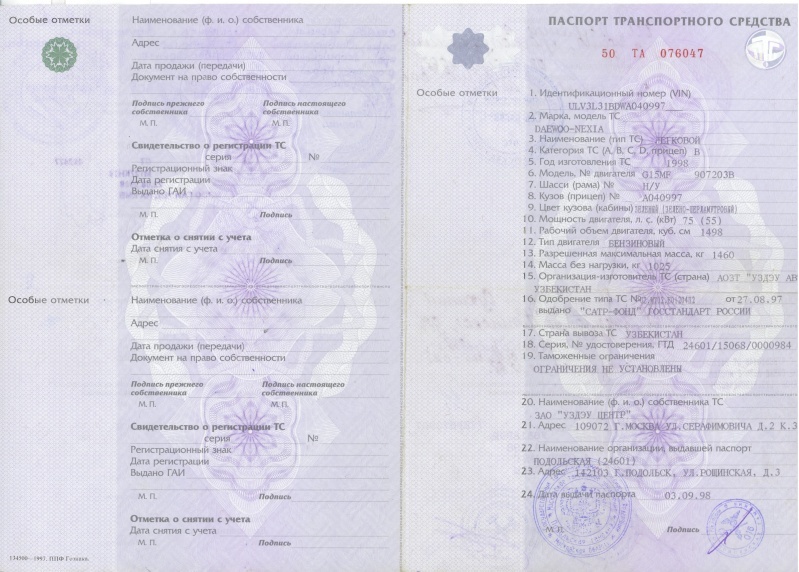 Особые отметки
Наименование (ф. и. о.) собственника
Адрес
Дата продажи (передачи)
Документ на право собственности
Подпись прежнего собственника
Подпись настоящего собственника
М. П.
М. П.
Свидетельство о регистрации ТС
серия №
Регистрационный знак
Дата регистрации
Выдано ГАИ
М. П. Подпись
Отметка о снятии с учета
Дата снятия с учета
М. П. Подпись
Особые отметки
Наименование (ф. и. о.) собственника
Адрес
Дата продажи (передачи)
Документ на право собственности
Подпись прежнего собственника
Подпись настоящего собственника
М. П.
М. П.
Свидетельство о регистрации ТС
серия №
Регистрационный знак
Дата регистрации
Выдано ГАИ
М. П. Подпись
Отметка о снятии с учета
Дата снятия с учета
М. П. Подпись
ПАСПОРТ ТРАНСПОРТНОГО СРЕДСТВА
50 ТА 076047
Особые отметки
1. Идентификационный номер (VIN)
ULV3L31BDWA040997
2. Марка, модель ТС
DAEWOO-NEXIA
3. Наименование (тип ТС) ЛЕГКОВОЙ
4. Категория ТС (А, В, С, D, прицеп) В
5. Год изготовления ТС 1998
6. Модель, № двигателя G15MF 907203B
7. Шасси (рама) № Н/У
8. Кузов (прицеп) № A040997
9. Цвет кузова (кабины) ЗЕЛЕНЫЙ (ЗЕЛЕНО-ПЕРЛАМУТРОВЫЙ)
10. Мощность двигателя, л. с. (кВт) 75 (55)
11. Рабочий объем двигателя, куб. см 1498
12. Тип двигателя БЕНЗИНОВЫЙ
13. Разрешенная максимальная масса, кг 1460
14. Масса без нагрузки, кг 1025
15. Организация-изготовитель ТС (страна) АОЗТ "УЗДЭУ АВ
УЗБЕКИСТАН
16. Одобрение типа ТС № от 27.08.97
выдано "САТР-ФОНД" ГОССТАНДАРТ РОССИИ
17. Страна вывоза ТС УЗБЕКИСТАН
18. Серия, № удостоверения, ГТД 24601/15068/0000984
19. Таможенные ограничения
ОГРАНИЧЕНИЯ НЕ УСТАНОВЛЕНЫ
20. Наименование (ф. и. о.) собственника ТС
ЗАО "УЗДЭУ ЦЕНТР"
21. Адрес 109072 Г.МОСКВА УЛ.СЕРАФИМОВИЧА Д.2 К.3
22. Наименование организации, выдавшей паспорт
ПОДОЛЬСКАЯ (24601)
23. Адрес 142103 Г.ПОДОЛЬСК, УЛ.РОЩИНСКАЯ, Д.3
24. Дата выдачи паспорта 03.09.98
М. П. Подпись